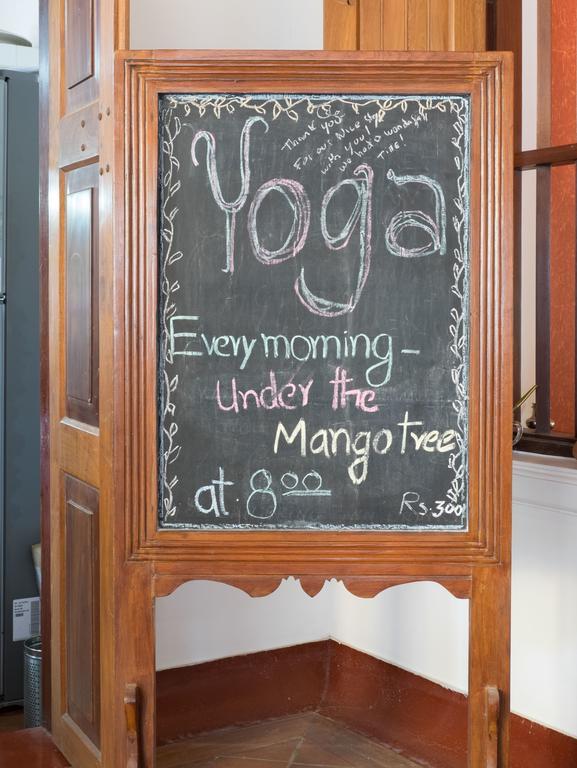 Thank you
For our Nice stay
with you!
we had a wonderful
Time!
Yoga
Every morning -
Under the
Mango tree
at 8.00
Rs.300